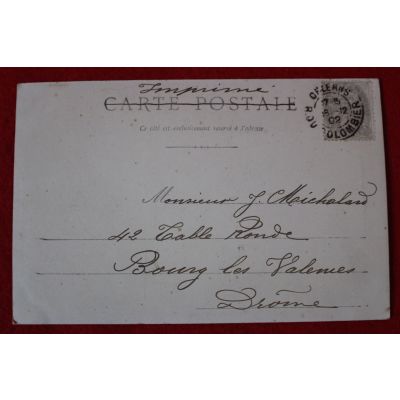 Imprimé
CARTE POSTALE
Ce côté est exclusivement réservé à l'adresse
ORLÉANS
COLOMBIER
02
Monsieur J. Michalard
42 Table Ronde
Bourg les Valences
Drôme